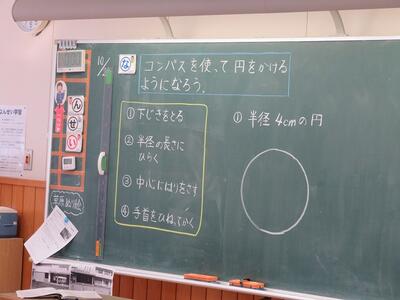 10/
な
コンパスを使って円をかける
ようになろう。
①下じきをとる
②半径の長さに
ひらく
③中心にはりをさす
④手首をひねってかく
①半径4cmの円
ん
せ
い